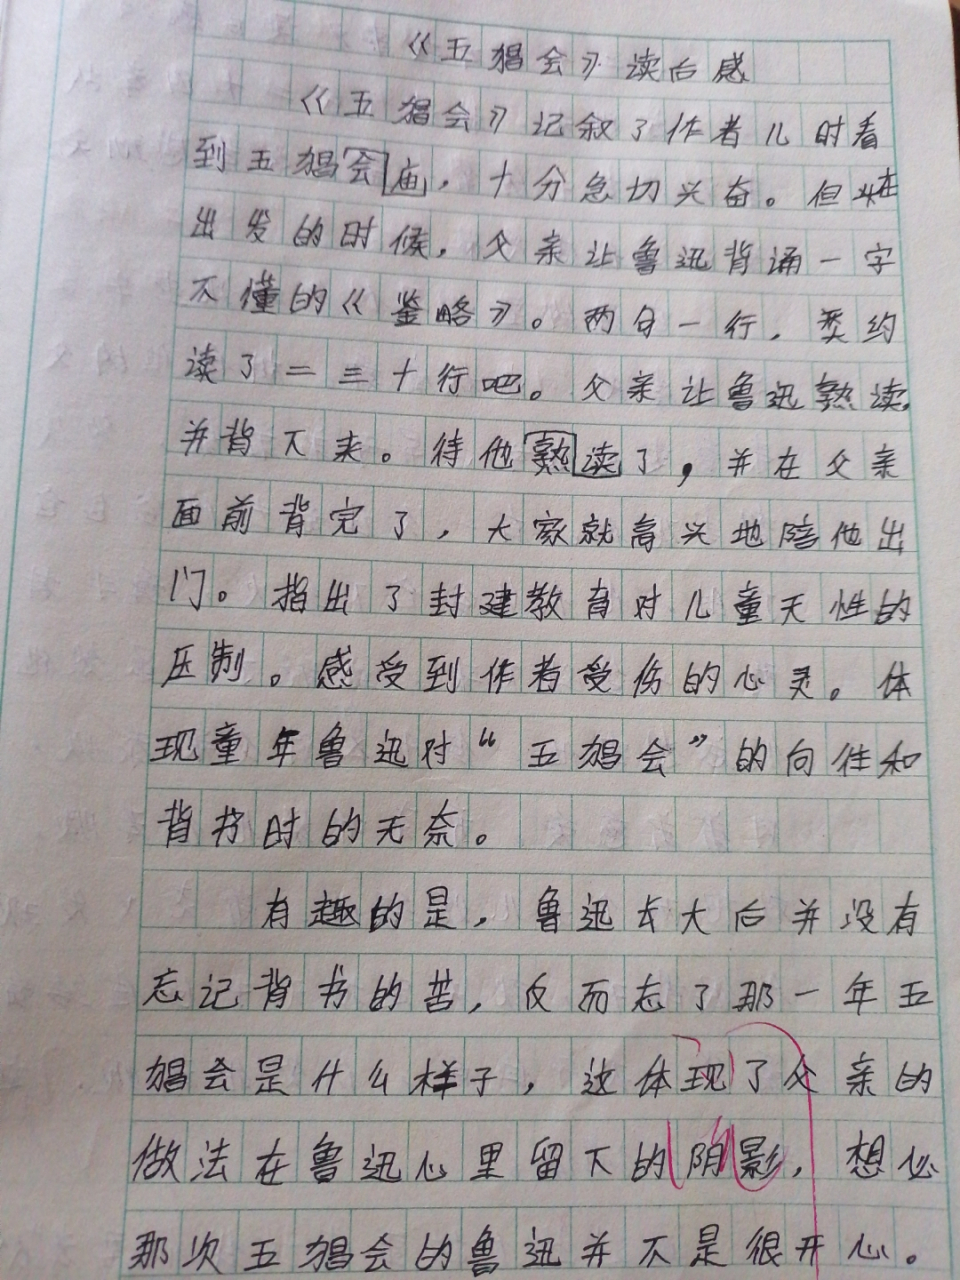 《五猖会》读后感
《五猖会》记叙了作者儿时看
到五猖会庙，十分急切兴奋。但在
出发的时候，父亲让鲁迅背诵一字
不懂的《鉴略》。两句一行，大约
读了二三十行吧。父亲让鲁迅熟读，
并背下来。待他熟读了，并在父亲
面前背完了，大家就高兴地陪他出
门。指出了封建教育对儿童天性的
压制。感受到作者受伤的心灵。体
现童年鲁迅对“五猖会”的向往和
背书时的无奈。
有趣的是，鲁迅长大后并没有
忘记背书的苦，反而忘了那一年五
猖会是什么样子，这体现了父亲的
做法在鲁迅心里留下的阴影，想必
那次五猖会的鲁迅并不是很开心。